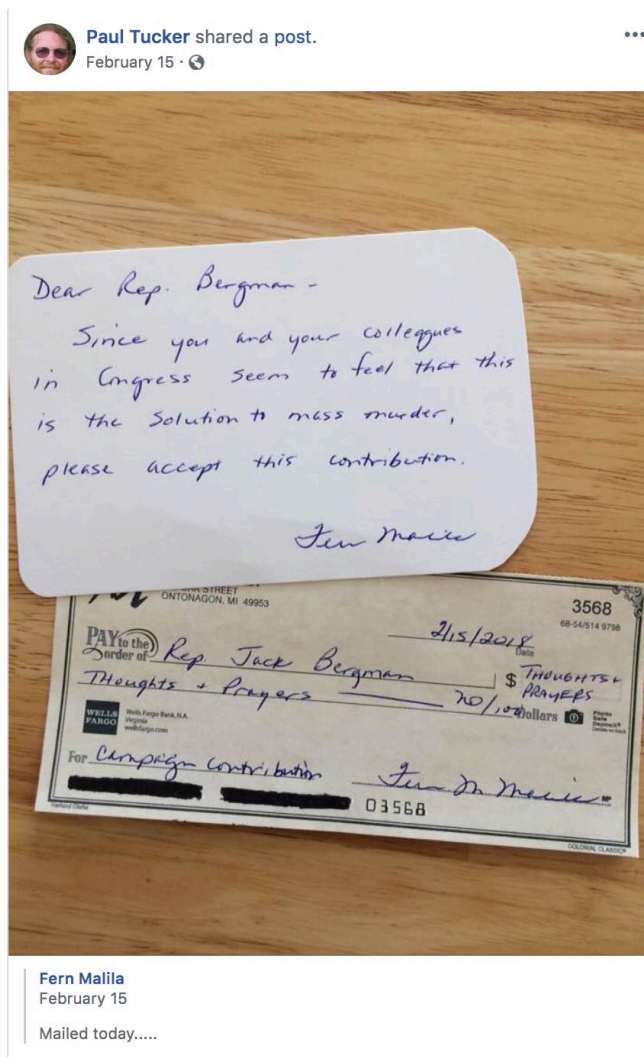 Paul Tucker shared a post.
February 15 ·
Dear Rep. Bergman -
Since you and your colleagues
in Congress seem to feel that this
is the solution to mass murder,
please accept this contribution.
Fern
STREET
ONTONAGON, MI 49953
3568
68-54/514 9798
2/15/2018
Date
PAY to the order of Rep. Jack Bergman
$ THOUGHTS + PRAYERS
Thoughts + Prayers no/100 Dollars
Photo Safe Deposit®
Details on back
WELLS FARGO
Wells Fargo Bank, N.A.
Virginia
wellsfargo.com
For Campaign Contribution
Fern M
MP
03568
Harland Clarke
COLONIAL CLASSIC®
Fern Malila
February 15
Mailed today.....